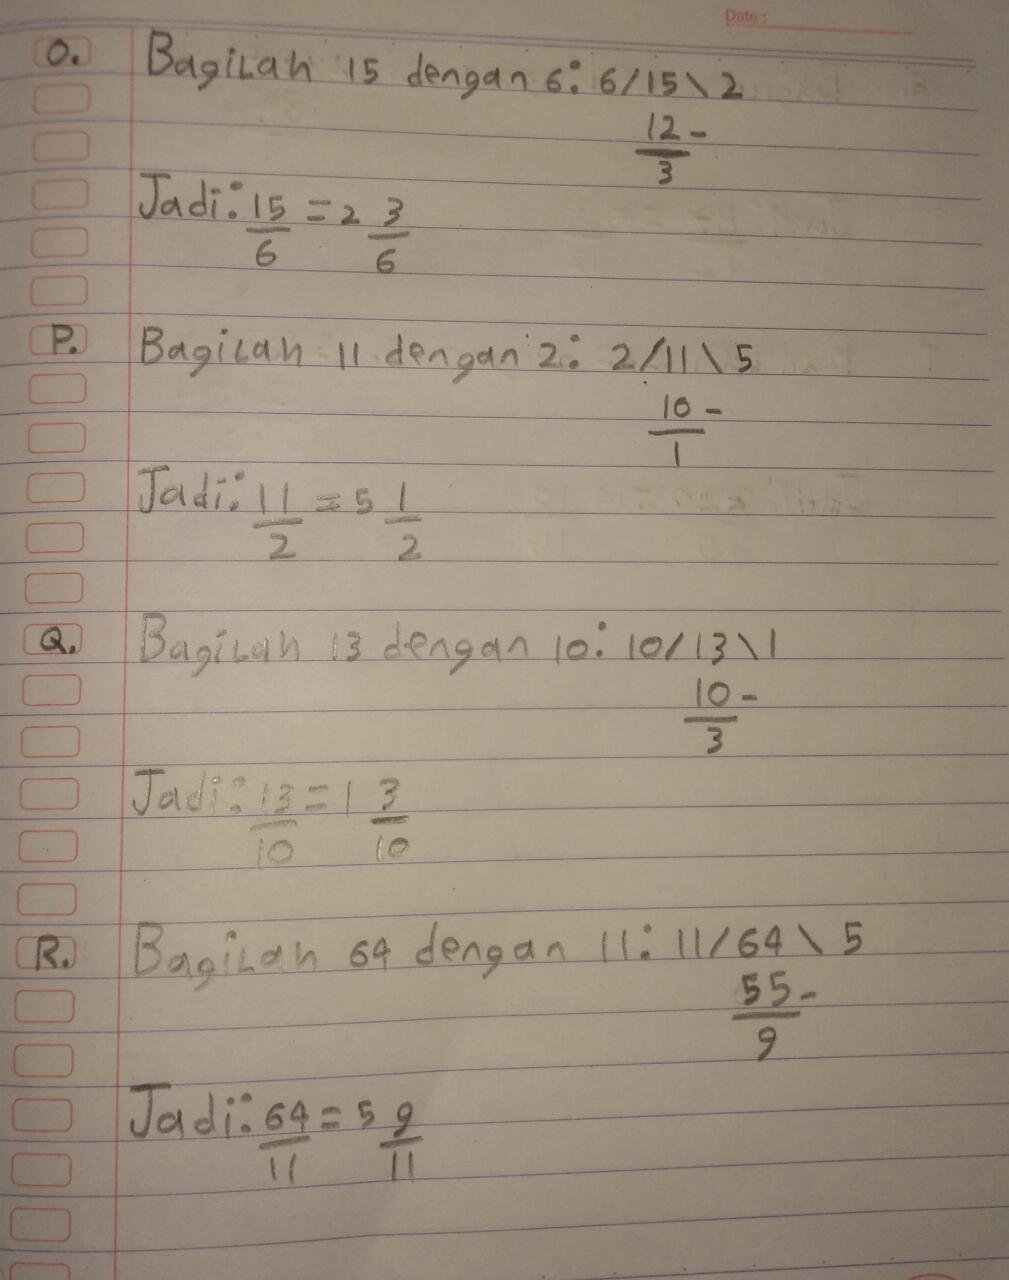 Date:
O. Bagilah 15 dengan 6: 6/15\2
12 -
3
Jadi: 15/6 = 2 3/6
P. Bagilah 11 dengan 2: 2/11\5
10 -
1
Jadi: 11/2 = 5 1/2
Q. Bagilah 13 dengan 10: 10/13\1
10 -
3
Jadi: 13/10 = 1 3/10
R. Bagilah 64 dengan 11: 11/64\5
55 -
9
Jadi: 64/11 = 5 9/11